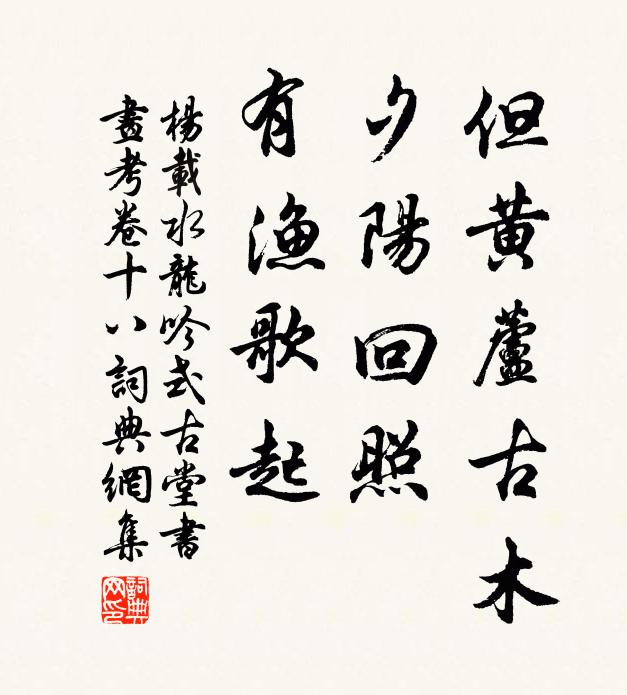 但黄蘆古木
夕陽回照
有漁歌起
楊載水龍吟式古堂書
畫考卷十八詞典網集
詞典网印